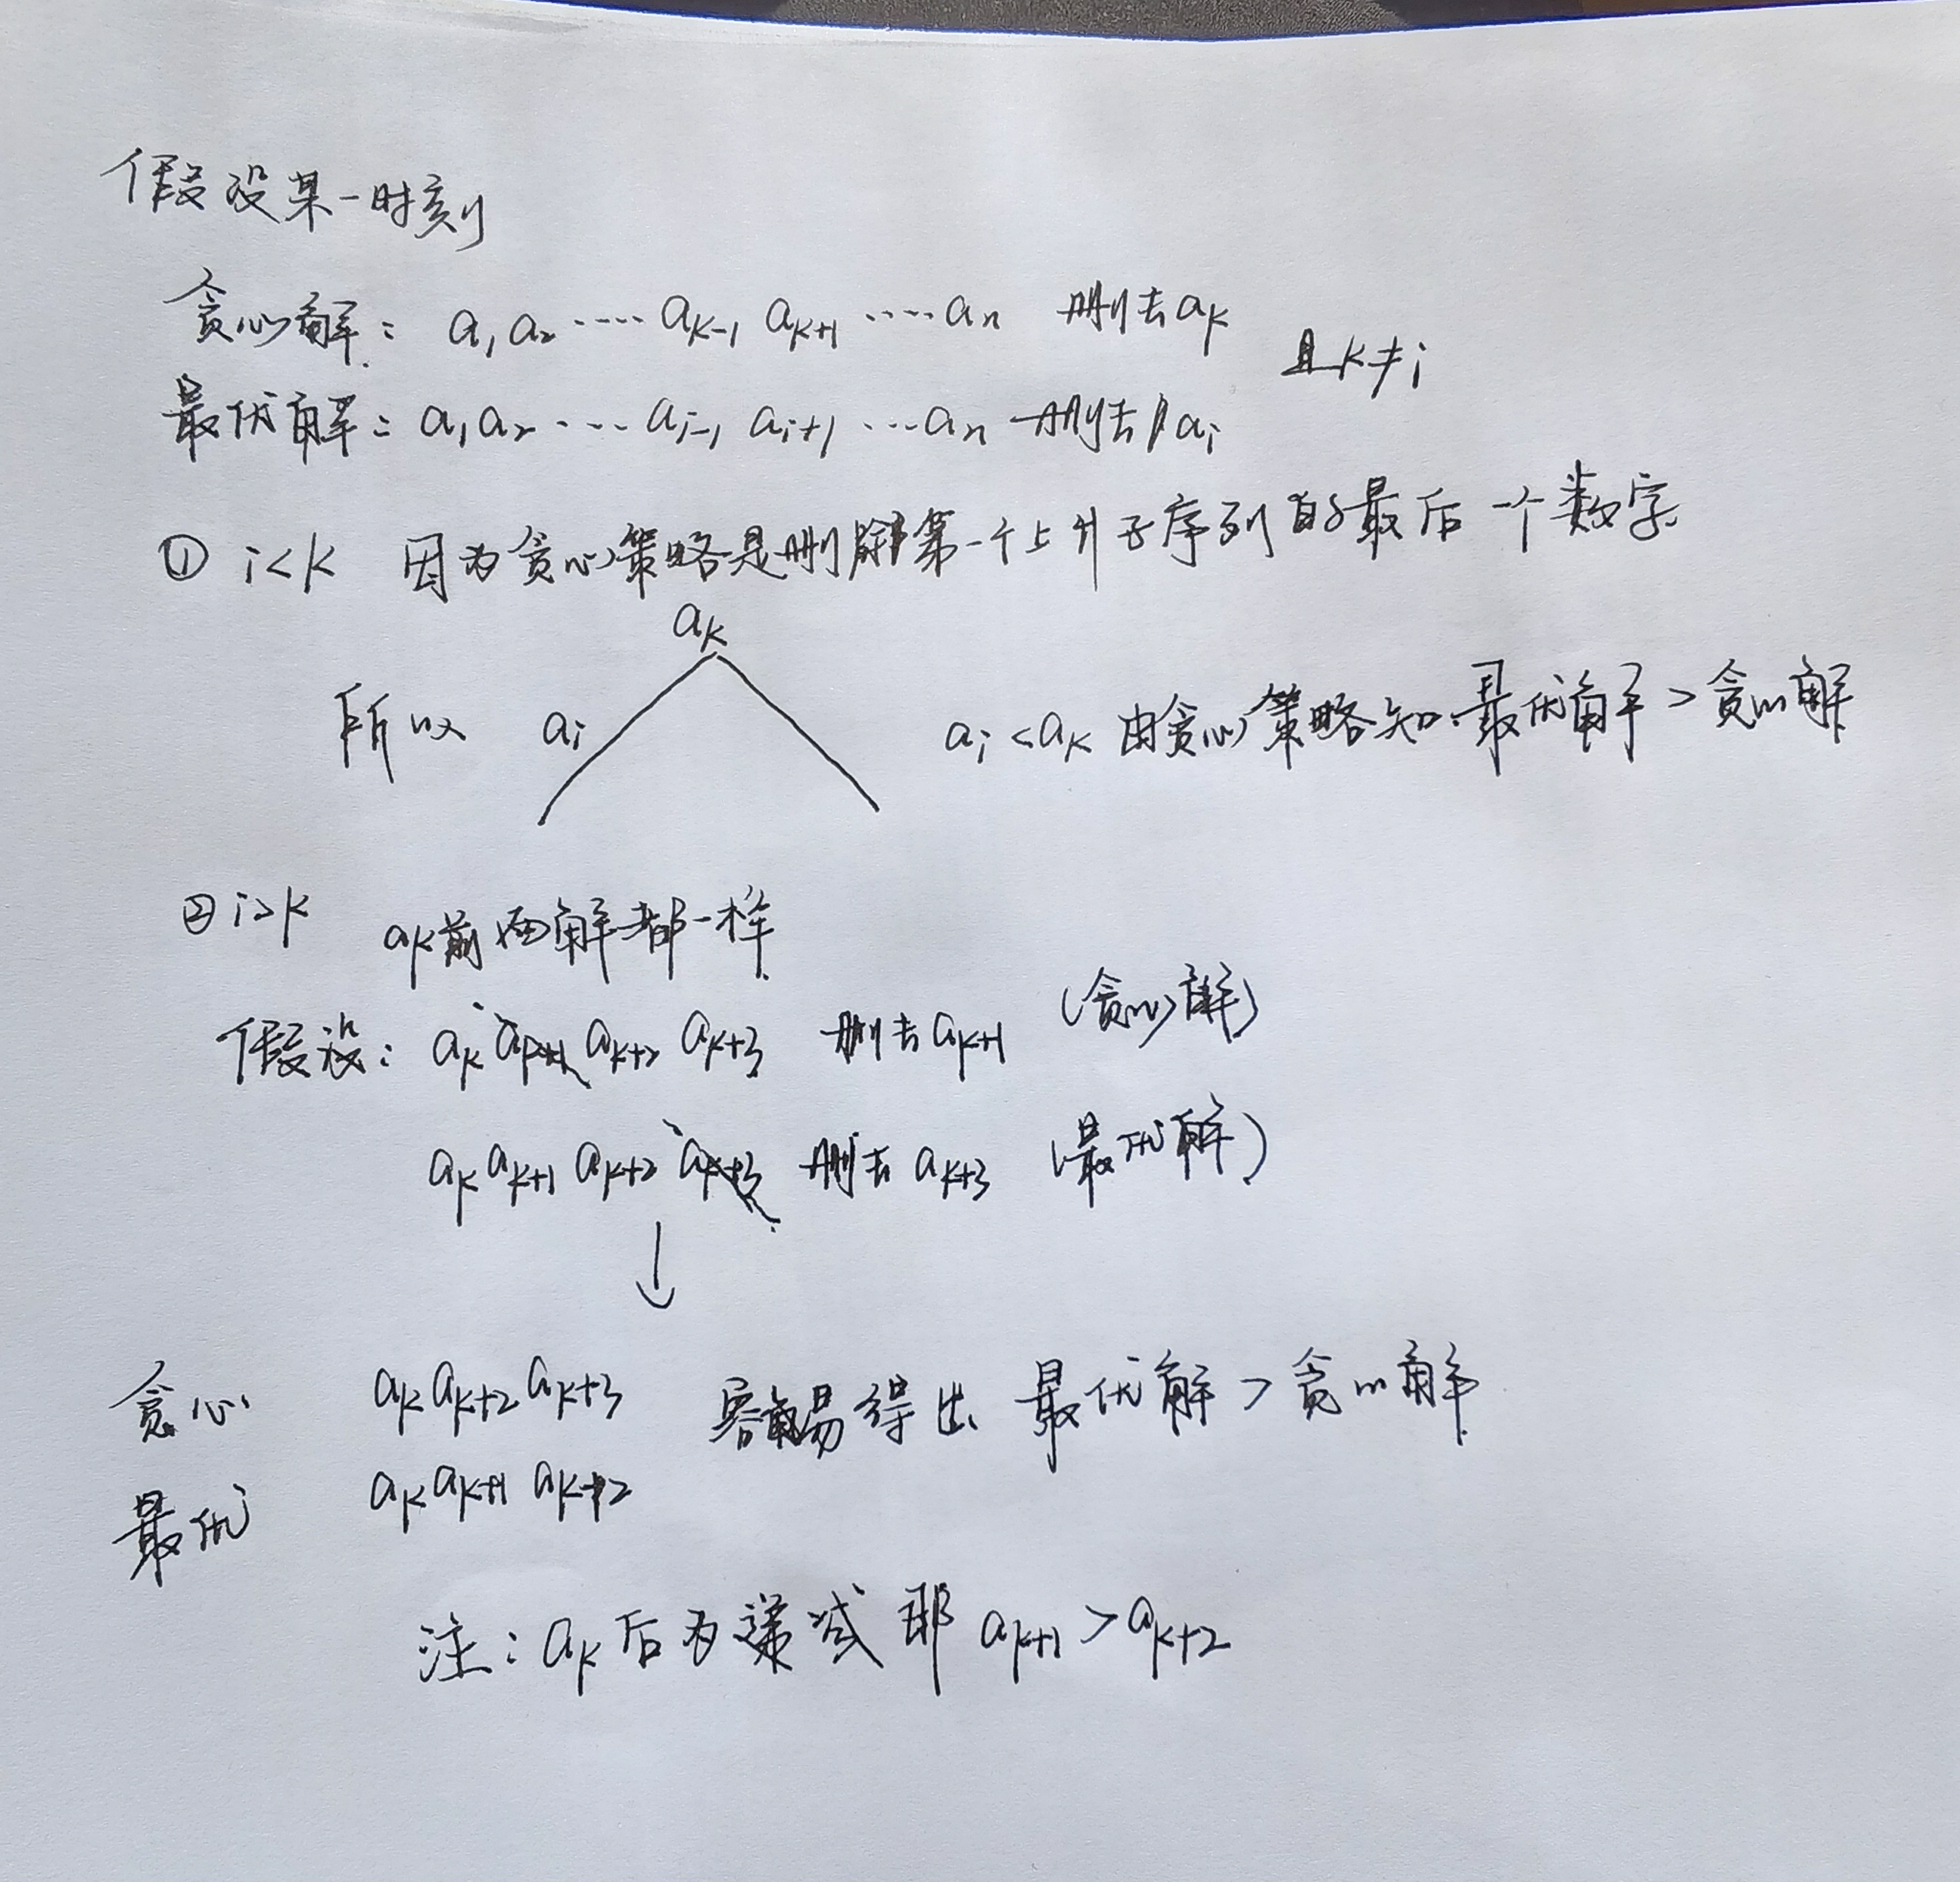 假设某一时刻
贪心解: a₁ a₂ ···· aₖ₋₁ aₖ₊₁ ····aₙ 删去aₖ 且k≠i
最优解: a₁ a₂ ··· aᵢ₋₁ aᵢ₊₁ ···aₙ 删去 aᵢ
① i<k 因为贪心策略是删除第一个上升子序列的最后一个数字
aₖ
所以 aᵢ aᵢ<aₖ 由贪心策略知最优解>贪心解
② i>k aₖ前面解都一样
假设: aₖ aₖ₊₁ aₖ₊₂ aₖ₊₃ 删去aₖ₊₁ (贪心解)
aₖ aₖ₊₁ aₖ₊₂ aₖ₊₃ 删去 aₖ₊₃ (最优解)
↓
贪心 aₖ aₖ₊₂ aₖ₊₃ 容易得出 最优解>贪心解
最优 aₖ aₖ₊₁ aₖ₊₂
注: aₖ后为递减 那 aₖ₊₁>aₖ₊₂